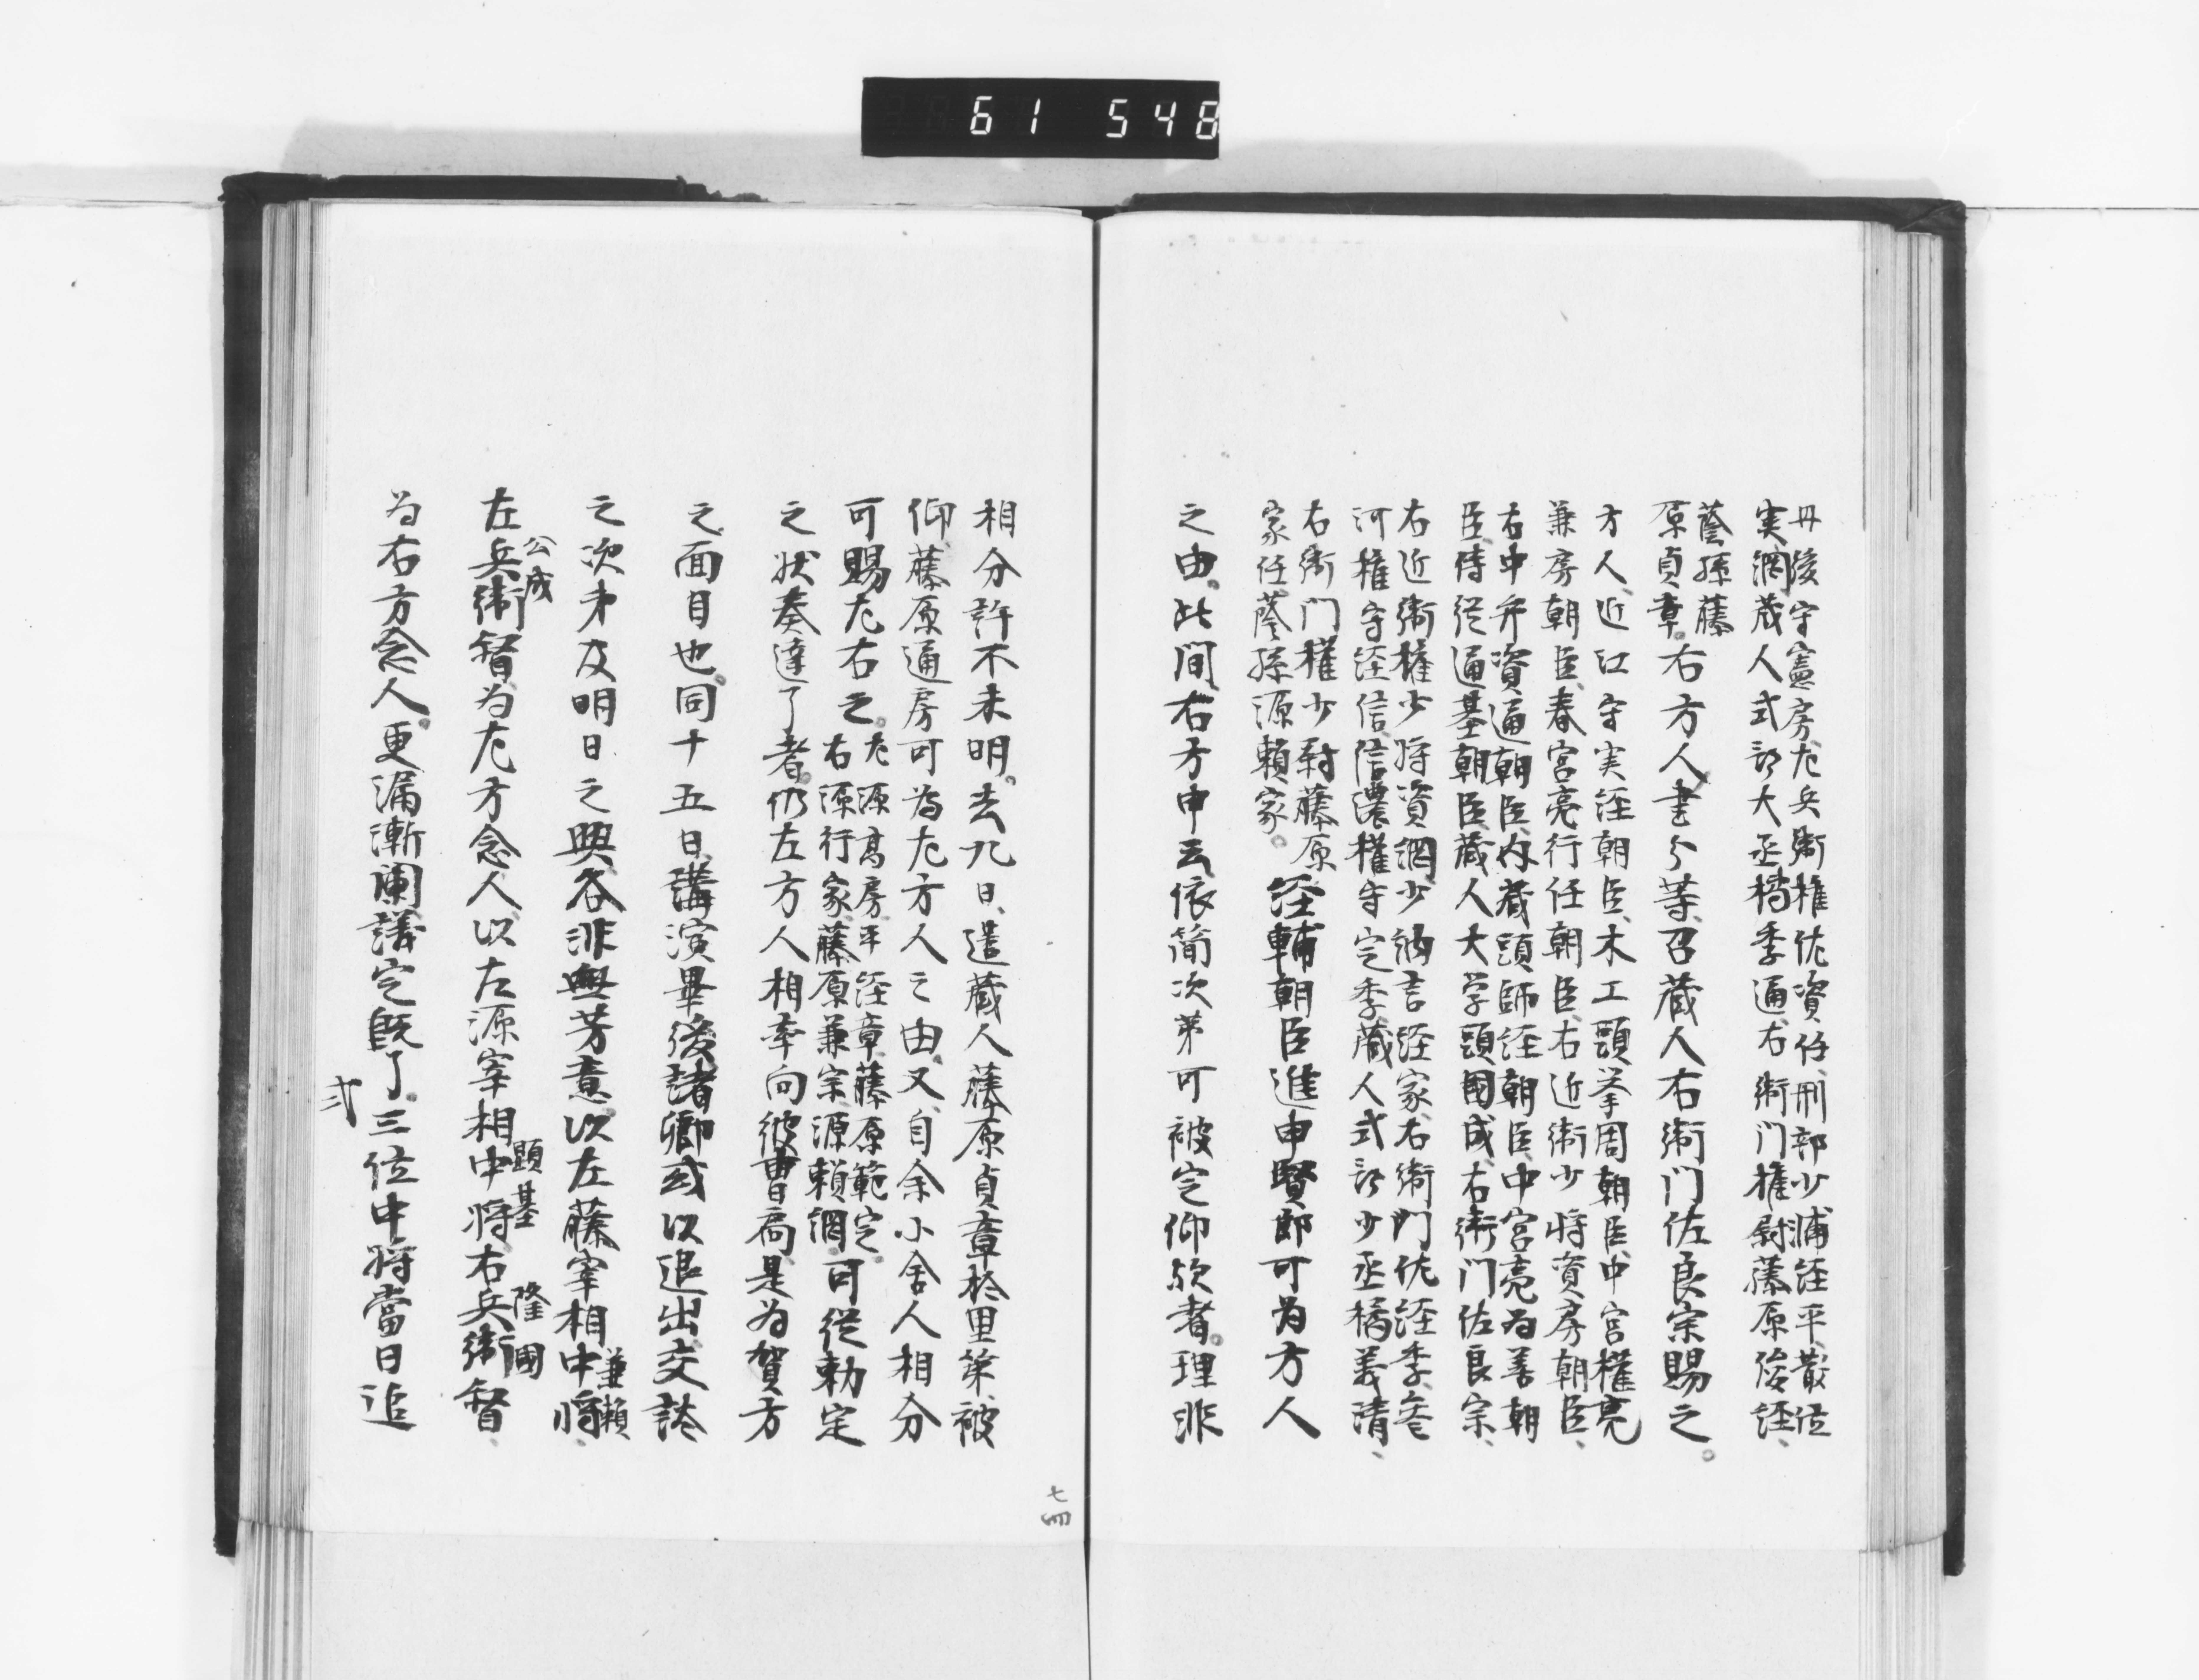 61 548
丹後守憲房、左兵衛権佐資任、刑部少輔経平、散位
実綱、蔵人式部大丞橘季通、右衛門権尉藤原俊経、
蔭孫藤
原貞章。右方人書分等、召蔵人右衛門佐良宗賜之。
方人、近江守実経朝臣、木工頭挙周朝臣、中宮権亮
兼房朝臣、春宮亮行任朝臣、右近衛少将資房朝臣、
右中弁資通朝臣、内蔵頭師経朝臣、中宮亮為善朝
臣、侍従通基朝臣、蔵人大学頭国成、右衛門佐良宗、
右近衛権少将資綱、少納言経家、右衛門佐経季、参
河権守経信、信濃権守定季、蔵人式部少丞橘義清、
右衛門権少尉藤原
家任、蔭孫源頼家。経輔朝臣進申賢郎可为方人
之由。此间右方申云、依简次第可被定仰欤者。理非
相分許不未明。去九日、遣蔵人藤原貞章於里第、被
仰藤原通房可为左方人之由、又自余小舎人相分
可賜左右之。左源高房、平経章、藤原範定。可従勅定
右源行家、藤原兼宗、源頼綱。
之状奏達了者。仍左方人相牽向彼曹局、是为賀方
之面目也。同十五日、講演畢後、諸卿或以退出、交談
之次、才及明日之興、各非無芳意、以左藤宰相中将、兼頼
左兵衛督公成为左方念人、以左源宰相中将顕基右兵衛督、隆国
为右方念人。更漏漸闌、議定既了。三位中将當日追
弐
七四